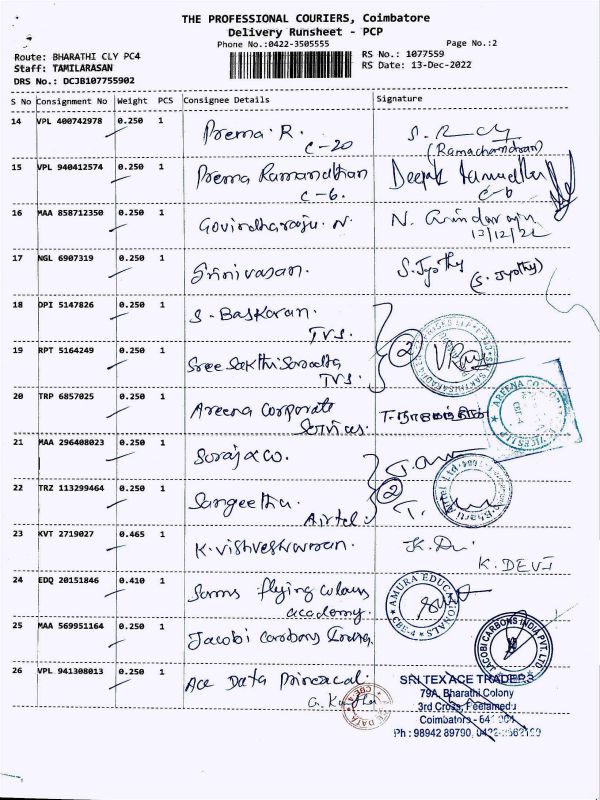 THE PROFESSIONAL COURIERS, Coimbatore
Delivery Runsheet - PCP
Phone No.:0422-3505555
Page No.:2
Route: BHARATHI CLY PC4
RS No.: 1077559
Staff: TAMILARASAN
RS Date: 13-Dec-2022
DRS No.: DCJB107755902
S No Consignment No Weight PCS Consignee Details Signature
14 VPL 400742978 0.250 1 Prema. R. C-20
(Ramachandran)
15 VPL 940412574 0.250 1 Prema Ramanathan C-6. Deepak C-6
16 MAA 858712350 0.250 1 Govindharaju. N. N. Govindaraju
13/12/22
17 NGL 6907319 0.250 1 Srinivasan. S. Jyothy
(S. Jyothy)
18 DPI 5147826 0.250 1 S. Baskaran. TVS.
19 RPT 5164249 0.250 1 Sree Sakthi Saradha TVS. 2
20 TRP 6857025 0.250 1 Areena Corporate Services.
21 MAA 296408023 0.250 1 Suraj & co.
22 TRZ 113299464 0.250 1 Sangeetha. Airtel. 2
23 KVT 2719027 0.465 1 K. Vishveshwaran. K. DEVI
24 EDQ 20151846 0.410 1 Sams flying colours academy.
AMURA EDUCATIONALS
CBE-4
25 MAA 569951164 0.250 1 Jacobi Carbons India
JACOBI CARBONS INDIA PVT. LTD.
26 VPL 941308013 0.250 1 Ace Data Principal.
SRI TEX ACE TRADERS
79A, Bharathi Colony
3rd Cross, Peelamedu
Coimbatore - 641 004
Ph : 98942 89790,